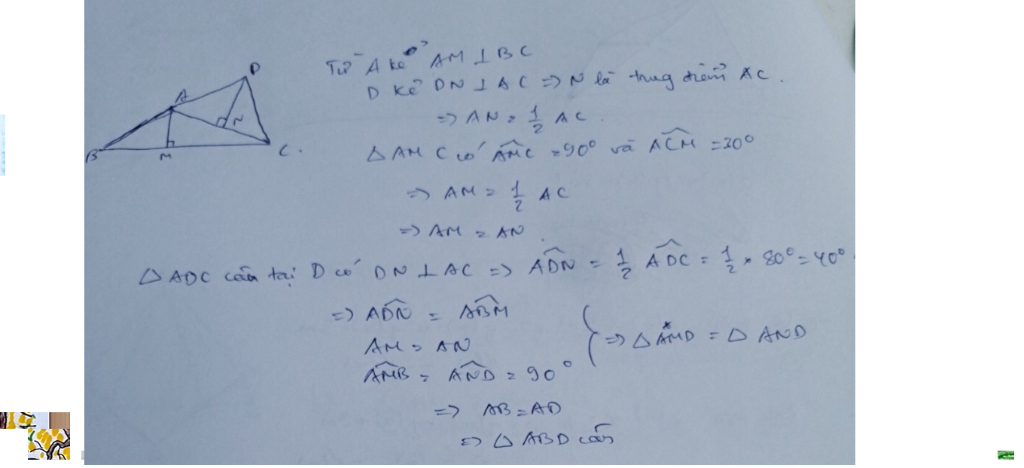 Từ A kẻ AM ⊥ BC
D kẻ DN ⊥ AC => N là trung điểm AC.
=> AN = 1/2 AC.
△ AMC có AMC = 90° và ACM = 30°
=> AM = 1/2 AC
=> AM = AN.
△ ADC cân tại D có DN ⊥ AC => ADN = 1/2 ADC = 1/2 × 80° = 40°.
=> ADN = ABM
AM = AN
=> △ AMD = △ AND
AMB = AND = 90°
=> AB = AD
=> △ ABD cân
D
A
N
B
M
C